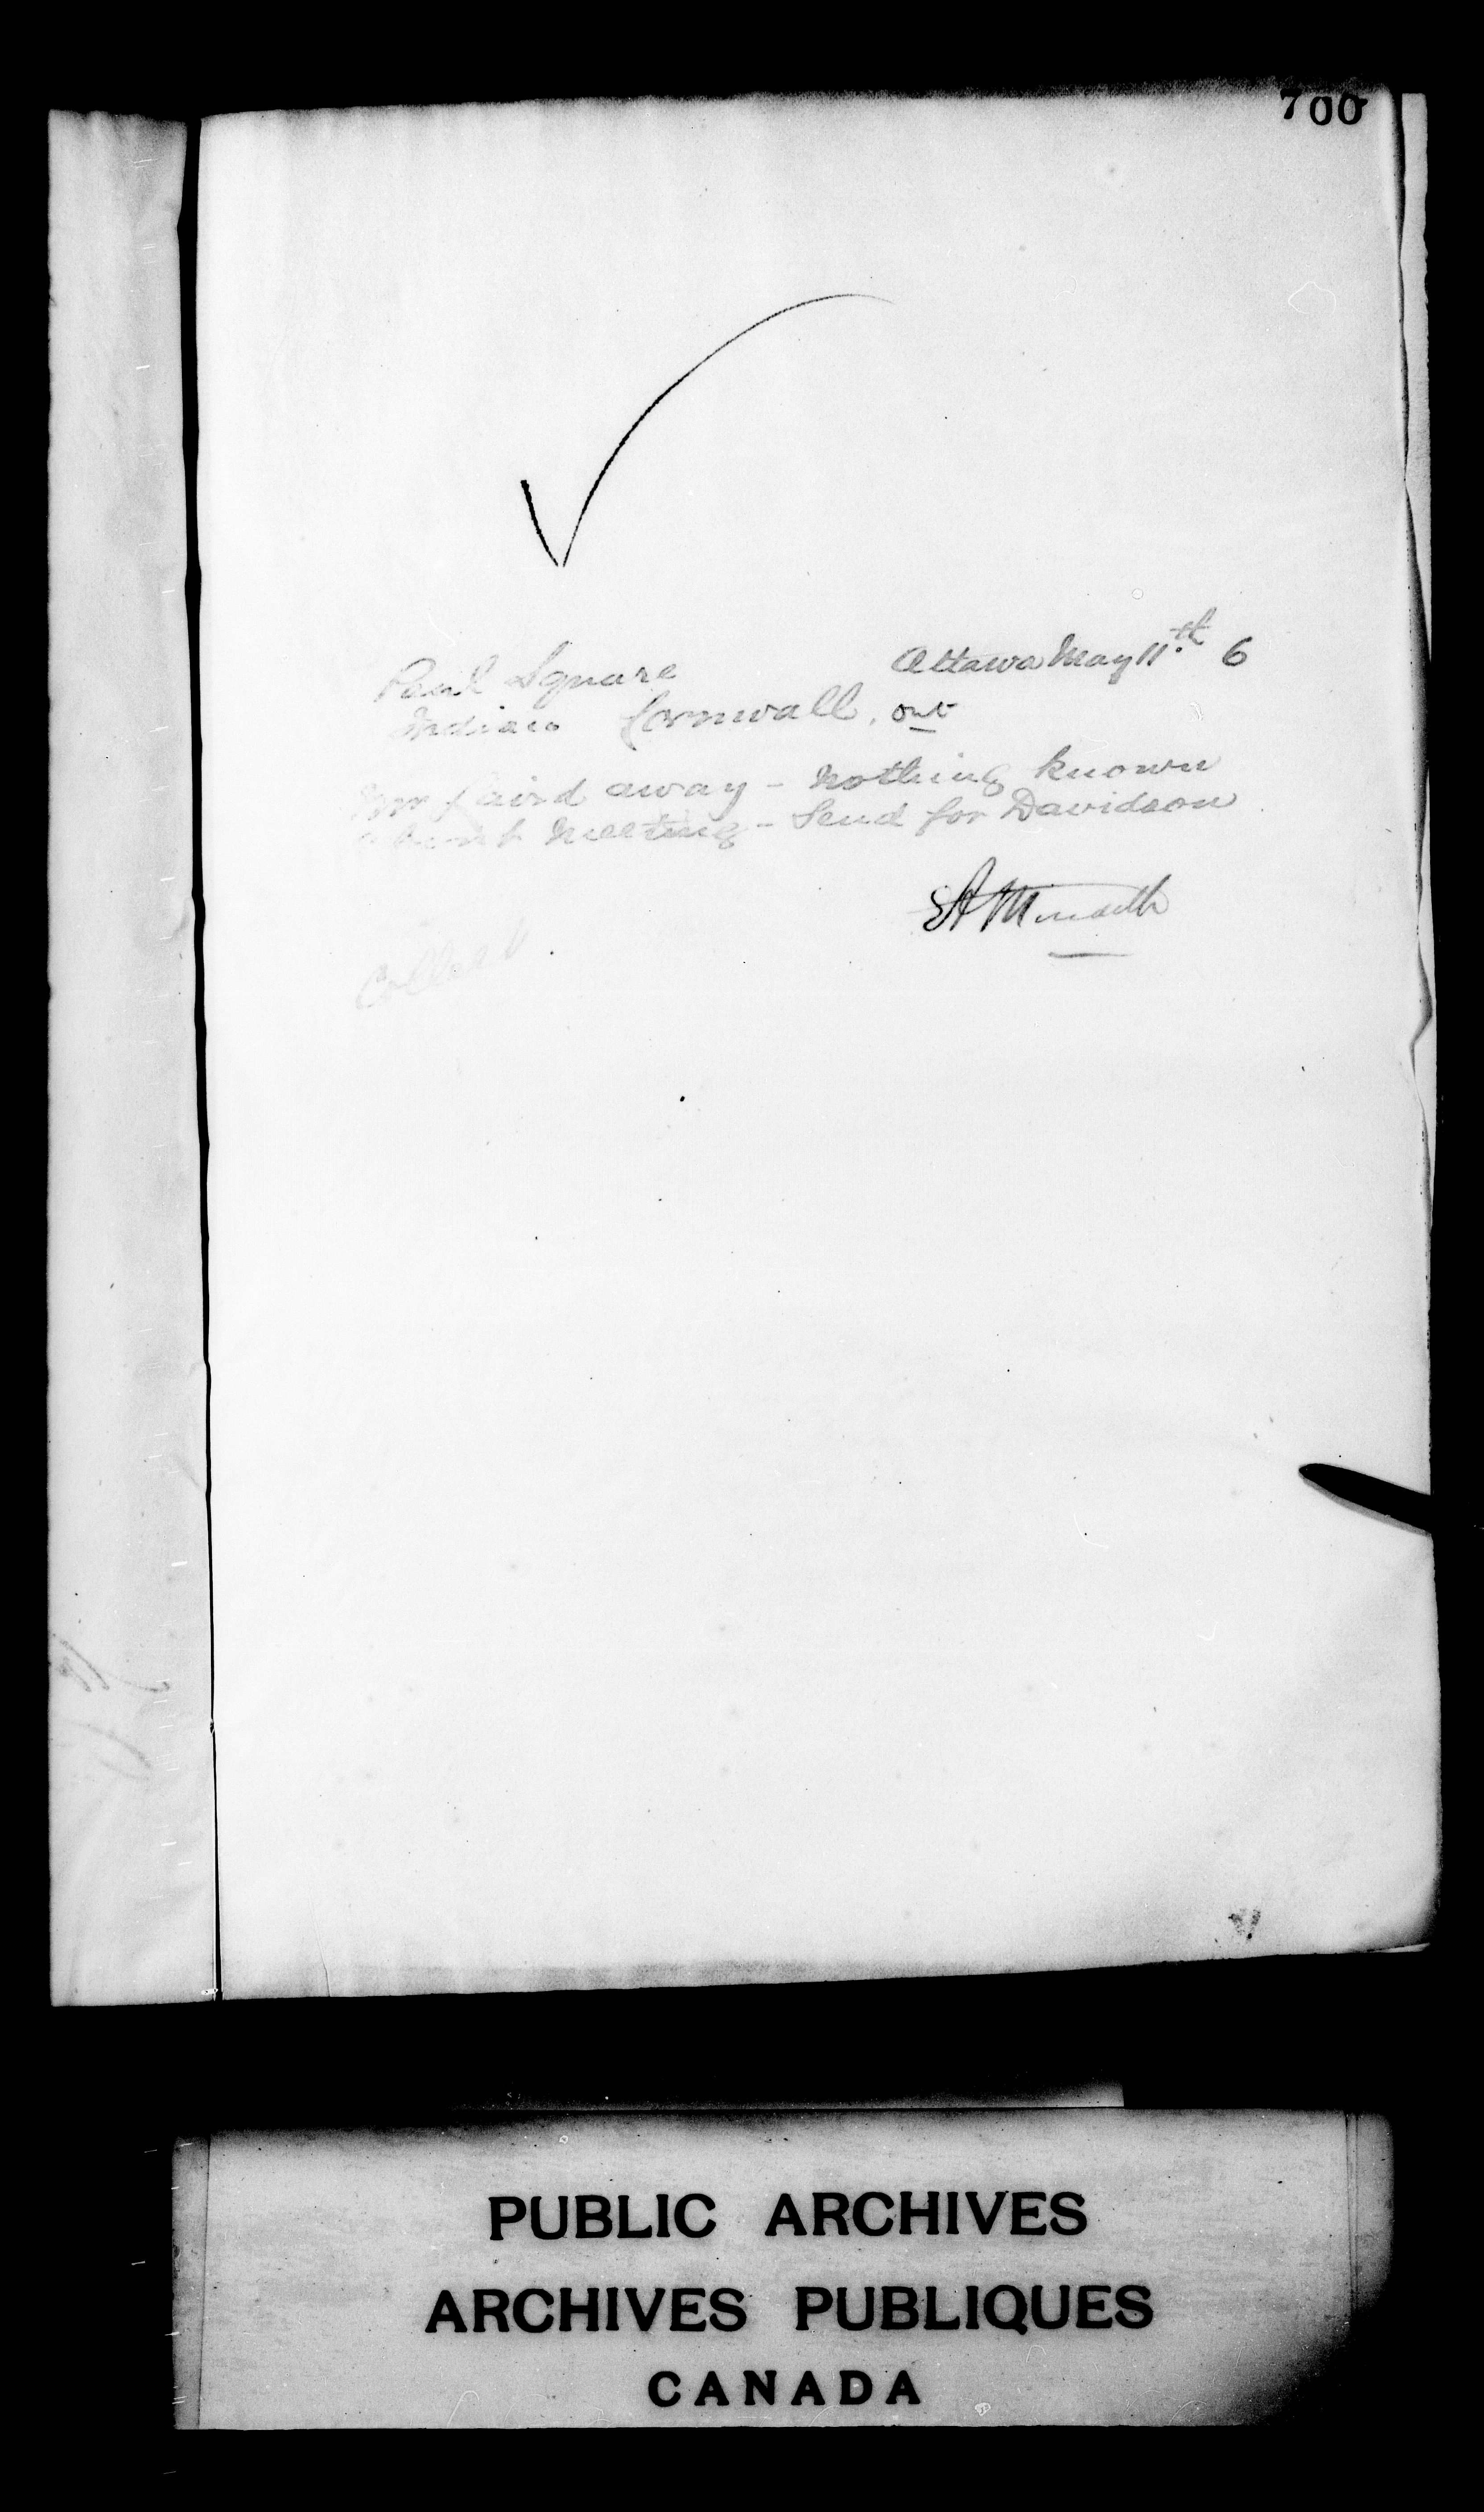 700
Ottawa May 11th 6
Paul Square
Indian Cornwall, Ont
Mr Laird away - Nothing known
about meeting - Send for Davidson
Collect
PUBLIC ARCHIVES
ARCHIVES PUBLIQUES
CANADA